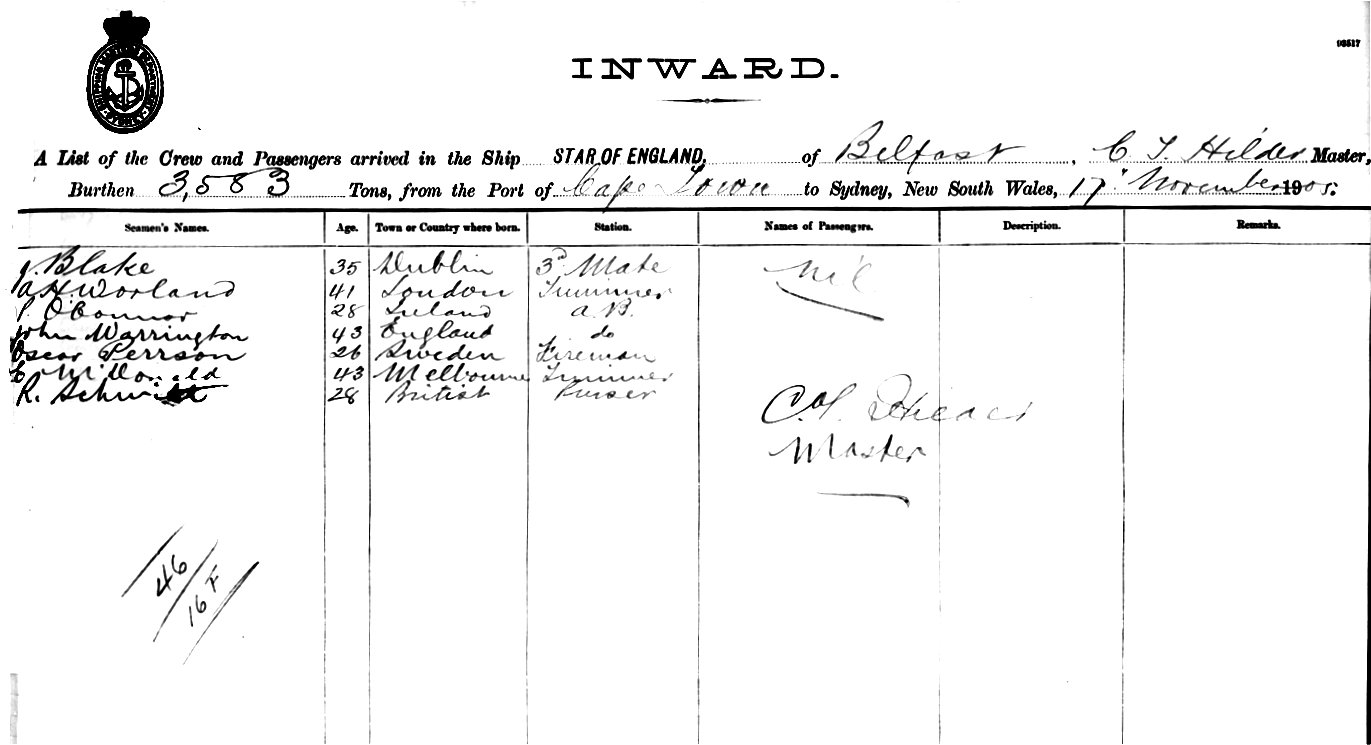 93517
INWARD.
SHIPPING MASTER'S DEPARTMENT SYDNEY
A List of the Crew and Passengers arrived in the Ship STAR OF ENGLAND, of Belfast, C T Hilder Master,
Burthen 3,583 Tons, from the Port of Cape Town to Sydney, New South Wales, 17" November 1905.
Seamen's Names. Age. Town or Country where born. Station. Names of Passengers. Description. Remarks.
J. Blake 35 Dublin 3rd Mate Nil
A H. Worland 41 London Trimmer
P. O'Connor 28 Ireland A.B.
John Warrington 43 England do
Oscar Perrson 26 Sweden Fireman
McDonald 43 Melbourne Trimmer
R. Schmidt 28 British Purser
Master
46
16 F